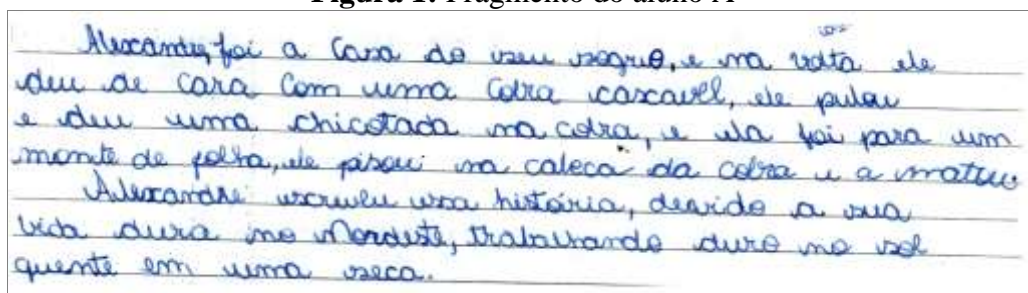 Figura 1: Fragmento do aluno A
Alexandre, foi a Casa do seu sogro, e na volta ele
deu de cara Com uma Cobra cascavel, ele pulou
e deu uma chicotada na cobra, e ela foi para um
monte de folha, ele pisou na cabeça da cobra e a matou
Alexandre escreveu essa história, devido a sua
vida dura no Nordeste, trabalhando duro no sol
quente em uma seca.